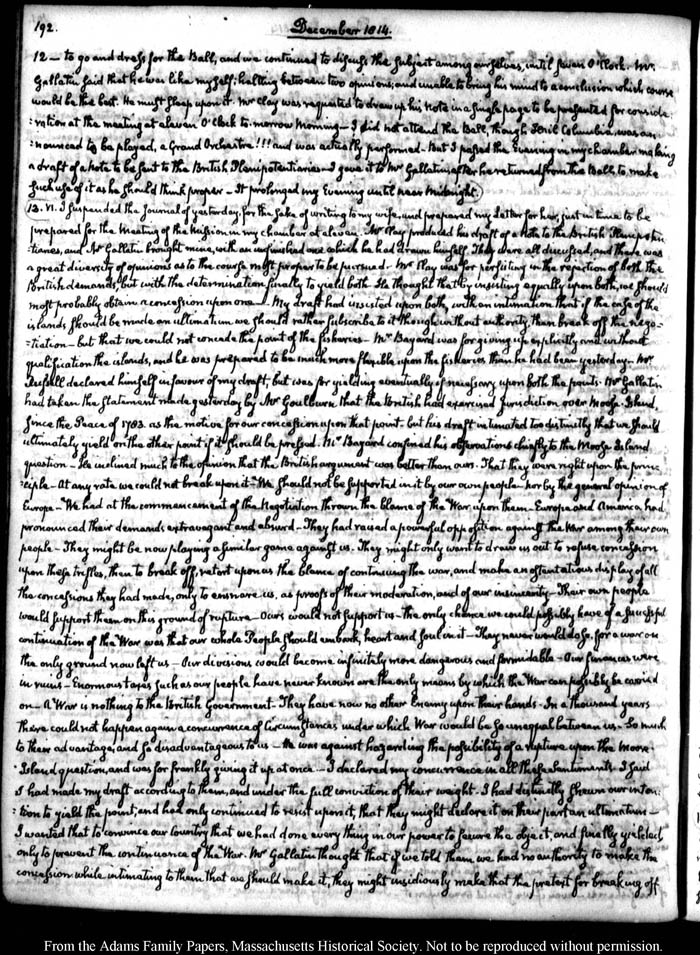 192.
December 1814.
12 — to go and dress for the Ball, and we continued to discuss the subject among ourselves, until seven O'Clock. Mr.
Gallatin said that he was like myself; halting between two opinions; and unable to bring his mind to a conclusion which course
would be the best. He must sleep upon it. Mr Clay was requested to draw up his Note in a single page to be presented for conside-
:ration at the meeting at eleven O'Clock to-morrow Morning — I did not attend the Ball, though Hail Columbia was an-
:nounced to be played, a Grand Orchestre!!! and was actually performed. But I passed the Evening in my chamber making
a draft of a Note to be sent to the British Plenipotentiaries — I gave it to Mr Gallatin after he returned from the Ball, to make
such use of it as he should think proper — It prolonged my Evening until near Midnight.
13. VI. I suspended the Journal of yesterday, for the sake of writing to my wife, and prepared my Letter for her, just in time to be
prepared for the Meeting of the Mission in my chamber at eleven. Mr Clay produced his draft of a Note to the British Plenipoten-
tiaries, and Mr Gallatin brought mine, with an unfinished one which he had drawn himself. They were all discussed, and there was
a great diversity of opinions as to the course most proper to be pursued. Mr Clay was for persisting in the rejection of both the
British demands, but with the determination finally to yield both. He thought that by insisting equally upon both, we should
most probably obtain a concession upon one — My draft had insisted upon both, with an intimation that if the case of the
islands should be made an ultimatum we should rather subscribe to it though without authority, than break off the nego-
:tiation — but that we could not concede the point of the fisheries — Mr Bayard was for giving up explicitly and without
qualification the islands, and he was prepared to be much more flexible upon the fisheries than he had been yesterday — Mr
Russell declared himself in favour of my draft, but was for yielding eventually if necessary upon both the points. Mr Gallatin
had taken the statement made yesterday by Mr Goulburn that the British had exercised jurisdiction over Moose Island,
since the Peace of 1783. as the motive for our concession upon that point. but his draft intimated too distinctly that we should
ultimately yield on the other point if it should be pressed. Mr Bayard confined his observations chiefly to the Moose Island
question — He inclined much to the opinion that the British argument was better than ours. That they were right upon the prin-
:ciple — At any rate we could not break upon it — We should not be supported in it by our own people — nor by the general opinion of
Europe — We had at the commencement of the Negotiation thrown the blame of the War upon them — Europe and America, had
pronounced their demands extravagant and absurd — They had raised a powerful opposition against the War among their own
people — They might be now playing a similar game against us. They might only want to draw us out to refuse concession
upon these trifles, then to break off, retort upon us the blame of continuing the war, and make an ostentatious display of all
the concessions they had made, only to ensnare us, as proofs of their moderation, and of our insincerity — Their own people
would support them on this ground of rupture — Ours would not support us — the only chance we could possibly have of a successful
continuation of the War was that our whole People should embark, heart and soul in it — They never would do so, for a war on
the only ground now left us — Our divisions would become infinitely more dangerous and formidable — Our finances were
in ruins — Enormous taxes such as our people have never known are the only means by which the War can possibly be carried
on — A War is nothing to the British Government — They have now no other Enemy upon their hands — In a thousand years
there could not happen again a concurrence of Circumstances under which War would be so unequal between us — So much
to their advantage, and so disadvantageous to us — He was against hazarding the possibility of a rupture upon the Moose-
:Island question, and was for frankly giving it up at once — I declared my concurrence in all these sentiments. I said
I had made my draft according to them, and under the full conviction of their weight — I had distinctly shewn our inten-
:tion to yield the point, and had only continued to resist upon it, that they might declare it on their part an ultimatum —
I wanted that to convince our Country that we had done every thing in our power to secure the object, and finally yielded
only to prevent the continuance of the War. Mr Gallatin thought that if we told them we had no authority to make the
concession while intimating to them that we should make it, they might insidiously make that the pretext for breaking off
From the Adams Family Papers, Massachusetts Historical Society. Not to be reproduced without permission.